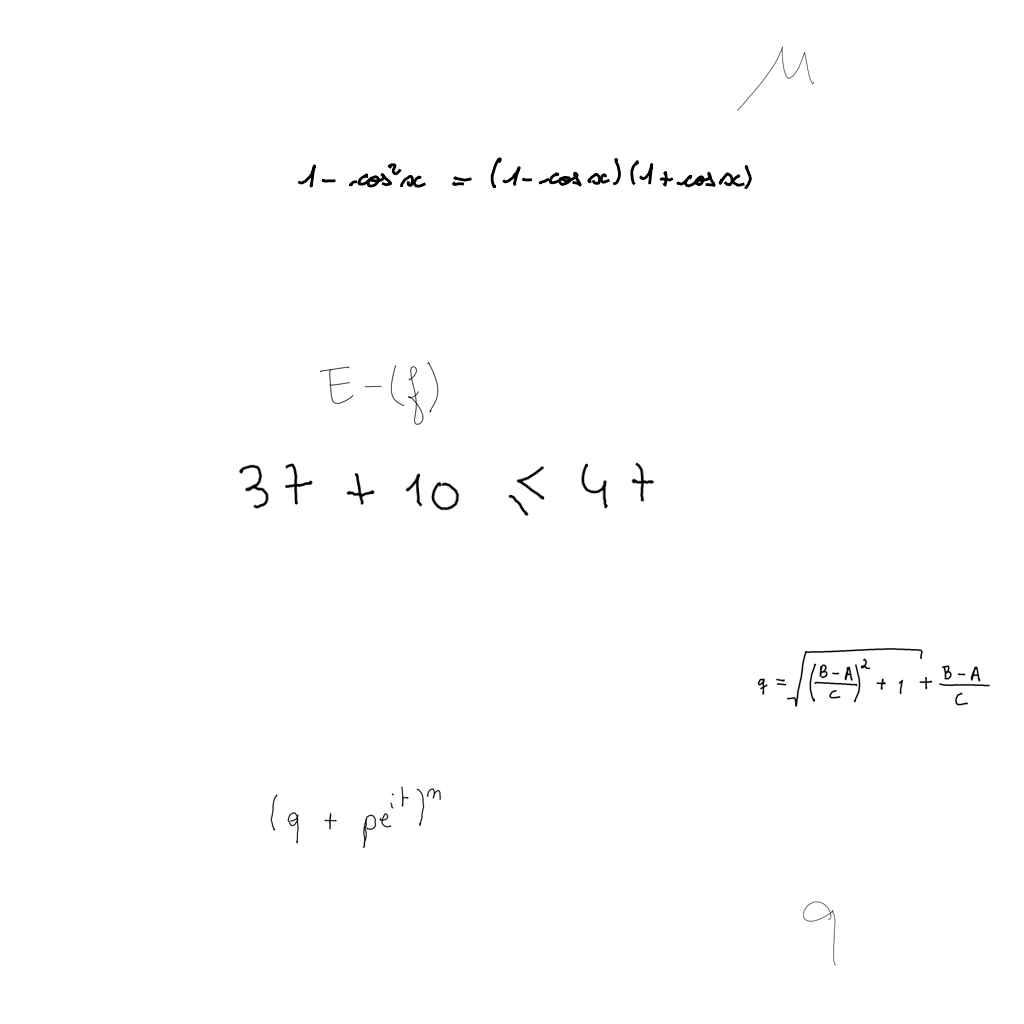 μ
1 - cos²x = (1 - cos x)(1 + cos x)
E - (f)
37 + 10 ≤ 47
q = √(((B - A)/C)² + 1) + (B - A)/C
(q + pe^{it})^n
q